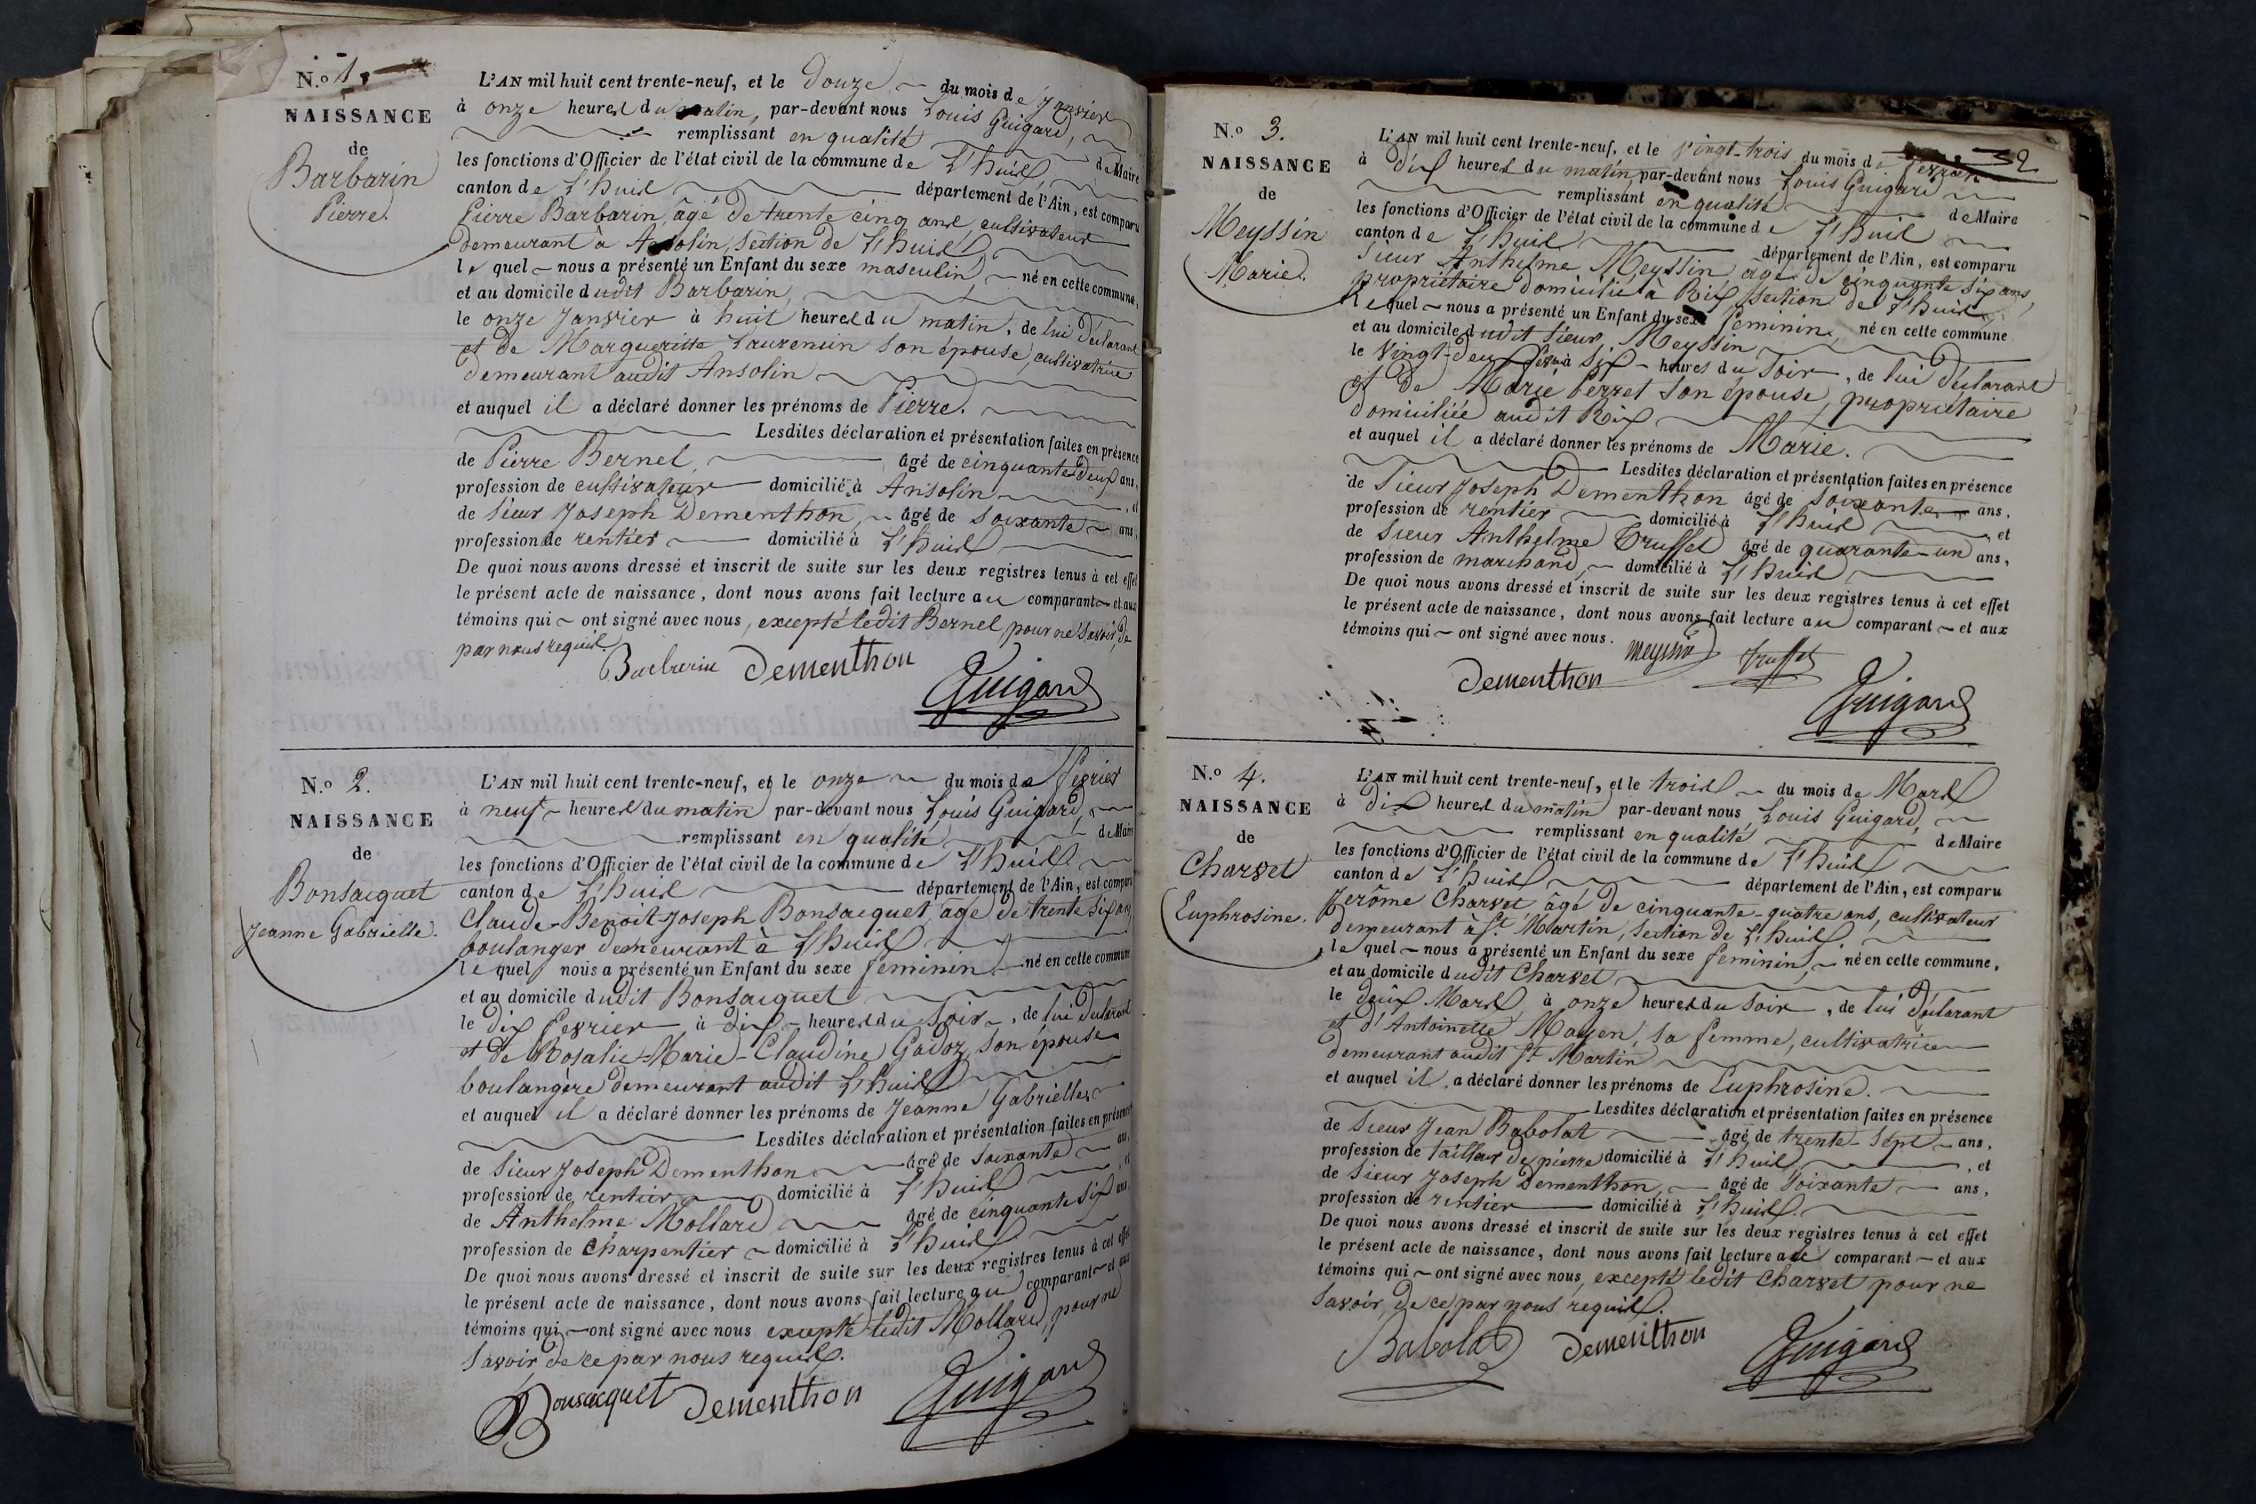 N.o 1.
NAISSANCE
de
Barbarin
Pierre.
L'AN mil huit cent trente-neuf, et le douze du mois de Janvier
à onze heures du matin, par-devant nous Louis Guigard,
remplissant en qualité de Maire
les fonctions d'Officier de l'état civil de la commune de L'huis,
canton de L'huis département de l'Ain, est comparu
Pierre Barbarin, âgé de trente cinq ans, cultivateur
demeurant à Ansolin, section de L'huis
lequel nous a présenté un Enfant du sexe masculin, né en cette commune,
et au domicile dudit Barbarin,
le onze Janvier à huit heures du matin, de lui déclarant
et de Margueritte Laurencin son épouse, cultivatrice
demeurant audit Ansolin
et auquel il a déclaré donner les prénoms de Pierre.
Lesdites déclaration et présentation faites en présence
de Pierre Bernel, âgé de cinquante deux ans,
profession de cultivateur domicilié à Ansolin, et
de sieur Joseph Dementhon, âgé de soixante ans,
profession de rentier domicilié à L'huis
De quoi nous avons dressé et inscrit de suite sur les deux registres tenus à cet effet
le présent acte de naissance, dont nous avons fait lecture au comparant et aux
témoins qui ont signé avec nous, excepté ledit Bernel, pour ne savoir, de
par nous requis
Barbarin Dementhon
Guigard
N.o 2.
NAISSANCE
de
Bonsacquet
Jeanne Gabrielle.
L'AN mil huit cent trente-neuf, et le onze du mois de février
à neuf heures du matin par-devant nous Louis Guigard,
remplissant en qualité de Maire
les fonctions d'Officier de l'état civil de la commune de L'huis
canton de L'huis département de l'Ain, est comparu
Claude-Benoit-Joseph Bonsacquet, âgé de trente six ans
boulanger demeurant à L'huis
lequel nous a présenté un Enfant du sexe feminin, né en cette commune
et au domicile dudit Bonsacquet
le dix fevrier à dix heures du soir, de lui déclarant
et de Rosalie-Marie-Claudine Gadoz, son épouse
boulangère demeurant audit L'huis
et auquel il a déclaré donner les prénoms de Jeanne Gabrielle,
Lesdites déclaration et présentation faites en présence
de sieur Joseph Dementhon âgé de soixante ans,
profession de rentier domicilié à L'huis, et
de Anthelme Mollard âgé de cinquante six ans,
profession de charpentier domicilié à L'huis
De quoi nous avons dressé et inscrit de suite sur les deux registres tenus à cet effet
le présent acte de naissance, dont nous avons fait lecture au comparant et aux
témoins qui ont signé avec nous excepté ledit Mollard, pour ne
savoir, de ce par nous requis.
Bonsacquet Dementhon Guigard
32
N.o 3.
NAISSANCE
de
Meyssin
Marie.
L'AN mil huit cent trente-neuf, et le vingt-trois du mois de fevrier
à dix heures du matin, par-devant nous Louis Guigard
remplissant en qualité de Maire
les fonctions d'Officier de l'état civil de la commune de L'huis
canton de L'huis département de l'Ain, est comparu
Sieur Anthelme Meyssin âgé de cinquante six ans,
propriétaire domicilié à Rix section de L'huis
Lequel nous a présenté un Enfant du sexe feminin, né en cette commune
et au domicile dudit sieur Meyssin
le vingt-deux fevr. à six heures du soir, de lui déclarant
et de Marie Perret son épouse, propriétaire
domiciliée audit Rix
et auquel il a déclaré donner les prénoms de Marie.
Lesdites déclaration et présentation faites en présence
de Sieur Joseph Dementhon âgé de soixante ans,
profession de rentier domicilié à L'huis et
de sieur Anthelme Truffet âgé de quarante-un ans,
profession de marchand, domicilié à L'huis
De quoi nous avons dressé et inscrit de suite sur les deux registres tenus à cet effet
le présent acte de naissance, dont nous avons fait lecture au comparant et aux
témoins qui ont signé avec nous. Meyssin Truffet
Dementhon
Guigard
N.o 4.
NAISSANCE
de
Charvet
Euphrosine.
L'AN mil huit cent trente-neuf, et le trois du mois de Mars
à dix heures du matin par-devant nous Louis Guigard,
remplissant en qualité de Maire
les fonctions d'Officier de l'état civil de la commune de L'huis
canton de L'huis département de l'Ain, est comparu
Jerôme Charvet âgé de cinquante-quatre ans, cultivateur
demeurant à St. Martin, section de L'huis,
lequel nous a présenté un Enfant du sexe feminin, né en cette commune,
et au domicile dudit Charvet
le deux Mars, à onze heures du soir, de lui déclarant
et d'Antoinette Moyen, sa femme, cultivatrice
demeurant audit St. Martin
et auquel il a déclaré donner les prénoms de Euphrosine.
Lesdites déclaration et présentation faites en présence
de sieur Jean Babolat âgé de trente-sept ans,
profession de tailleur de pierre domicilié à L'huis, et
de sieur Joseph Dementhon, âgé de soixante ans,
profession de rentier domicilié à L'huis.
De quoi nous avons dressé et inscrit de suite sur les deux registres tenus à cet effet
le présent acte de naissance, dont nous avons fait lecture au comparant et aux
témoins qui ont signé avec nous, excepté ledit Charvet pour ne
savoir, de ce par nous requis.
Babolat Dementhon Guigard